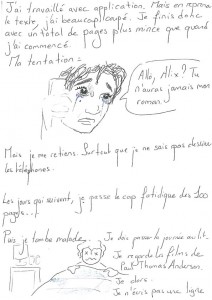 J'ai travaillé avec application. Mais en reprenant
le texte, j'ai beaucoup coupé. Je finis donc
avec un total de pages plus mince que quand
j'ai commencé.
Ma tentation :
Allo, Alix? Tu
n'auras jamais mon
roman.
Mais je me retiens. Surtout que je ne sais pas dessiner
les téléphones.
Les jours qui suivent, je passe le cap fatidique des 100
pages...
Puis je tombe malade.
Je dois passer la journée au lit.
Je regarde les films de
Paul Thomas Anderson.
Je dors.
Je n'écris pas une ligne